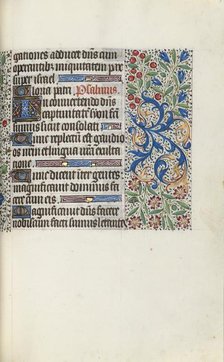 gationes adducet dñs cum
operantibus iniquitatem pax
super israel
Gloria patri Psalmus
In convertendo dñs
captivitatem sion
sumus sicut consolati
Tunc repletum est gaudio
os nrm et lingua nra exulta
cione
Tunc dicent inter gentes
magnificavit dominus fa
cere cum eis
Magnificavit dñs facere
nobiscum facti sumus letantes